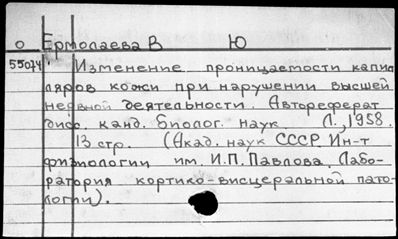 о Ермолаева В Ю
55074 Изменение проницаемости капил
ляров кожи при нарушении высшей
нервной деятельности. Автореферат
дисс. канд. биолог. наук Л., 1958.
13 стр. (Акад. наук СССР. Ин-т
физиологии им. И.П. Павлова. Лабо-
ратория кортико-висцеральной пато-
логии).